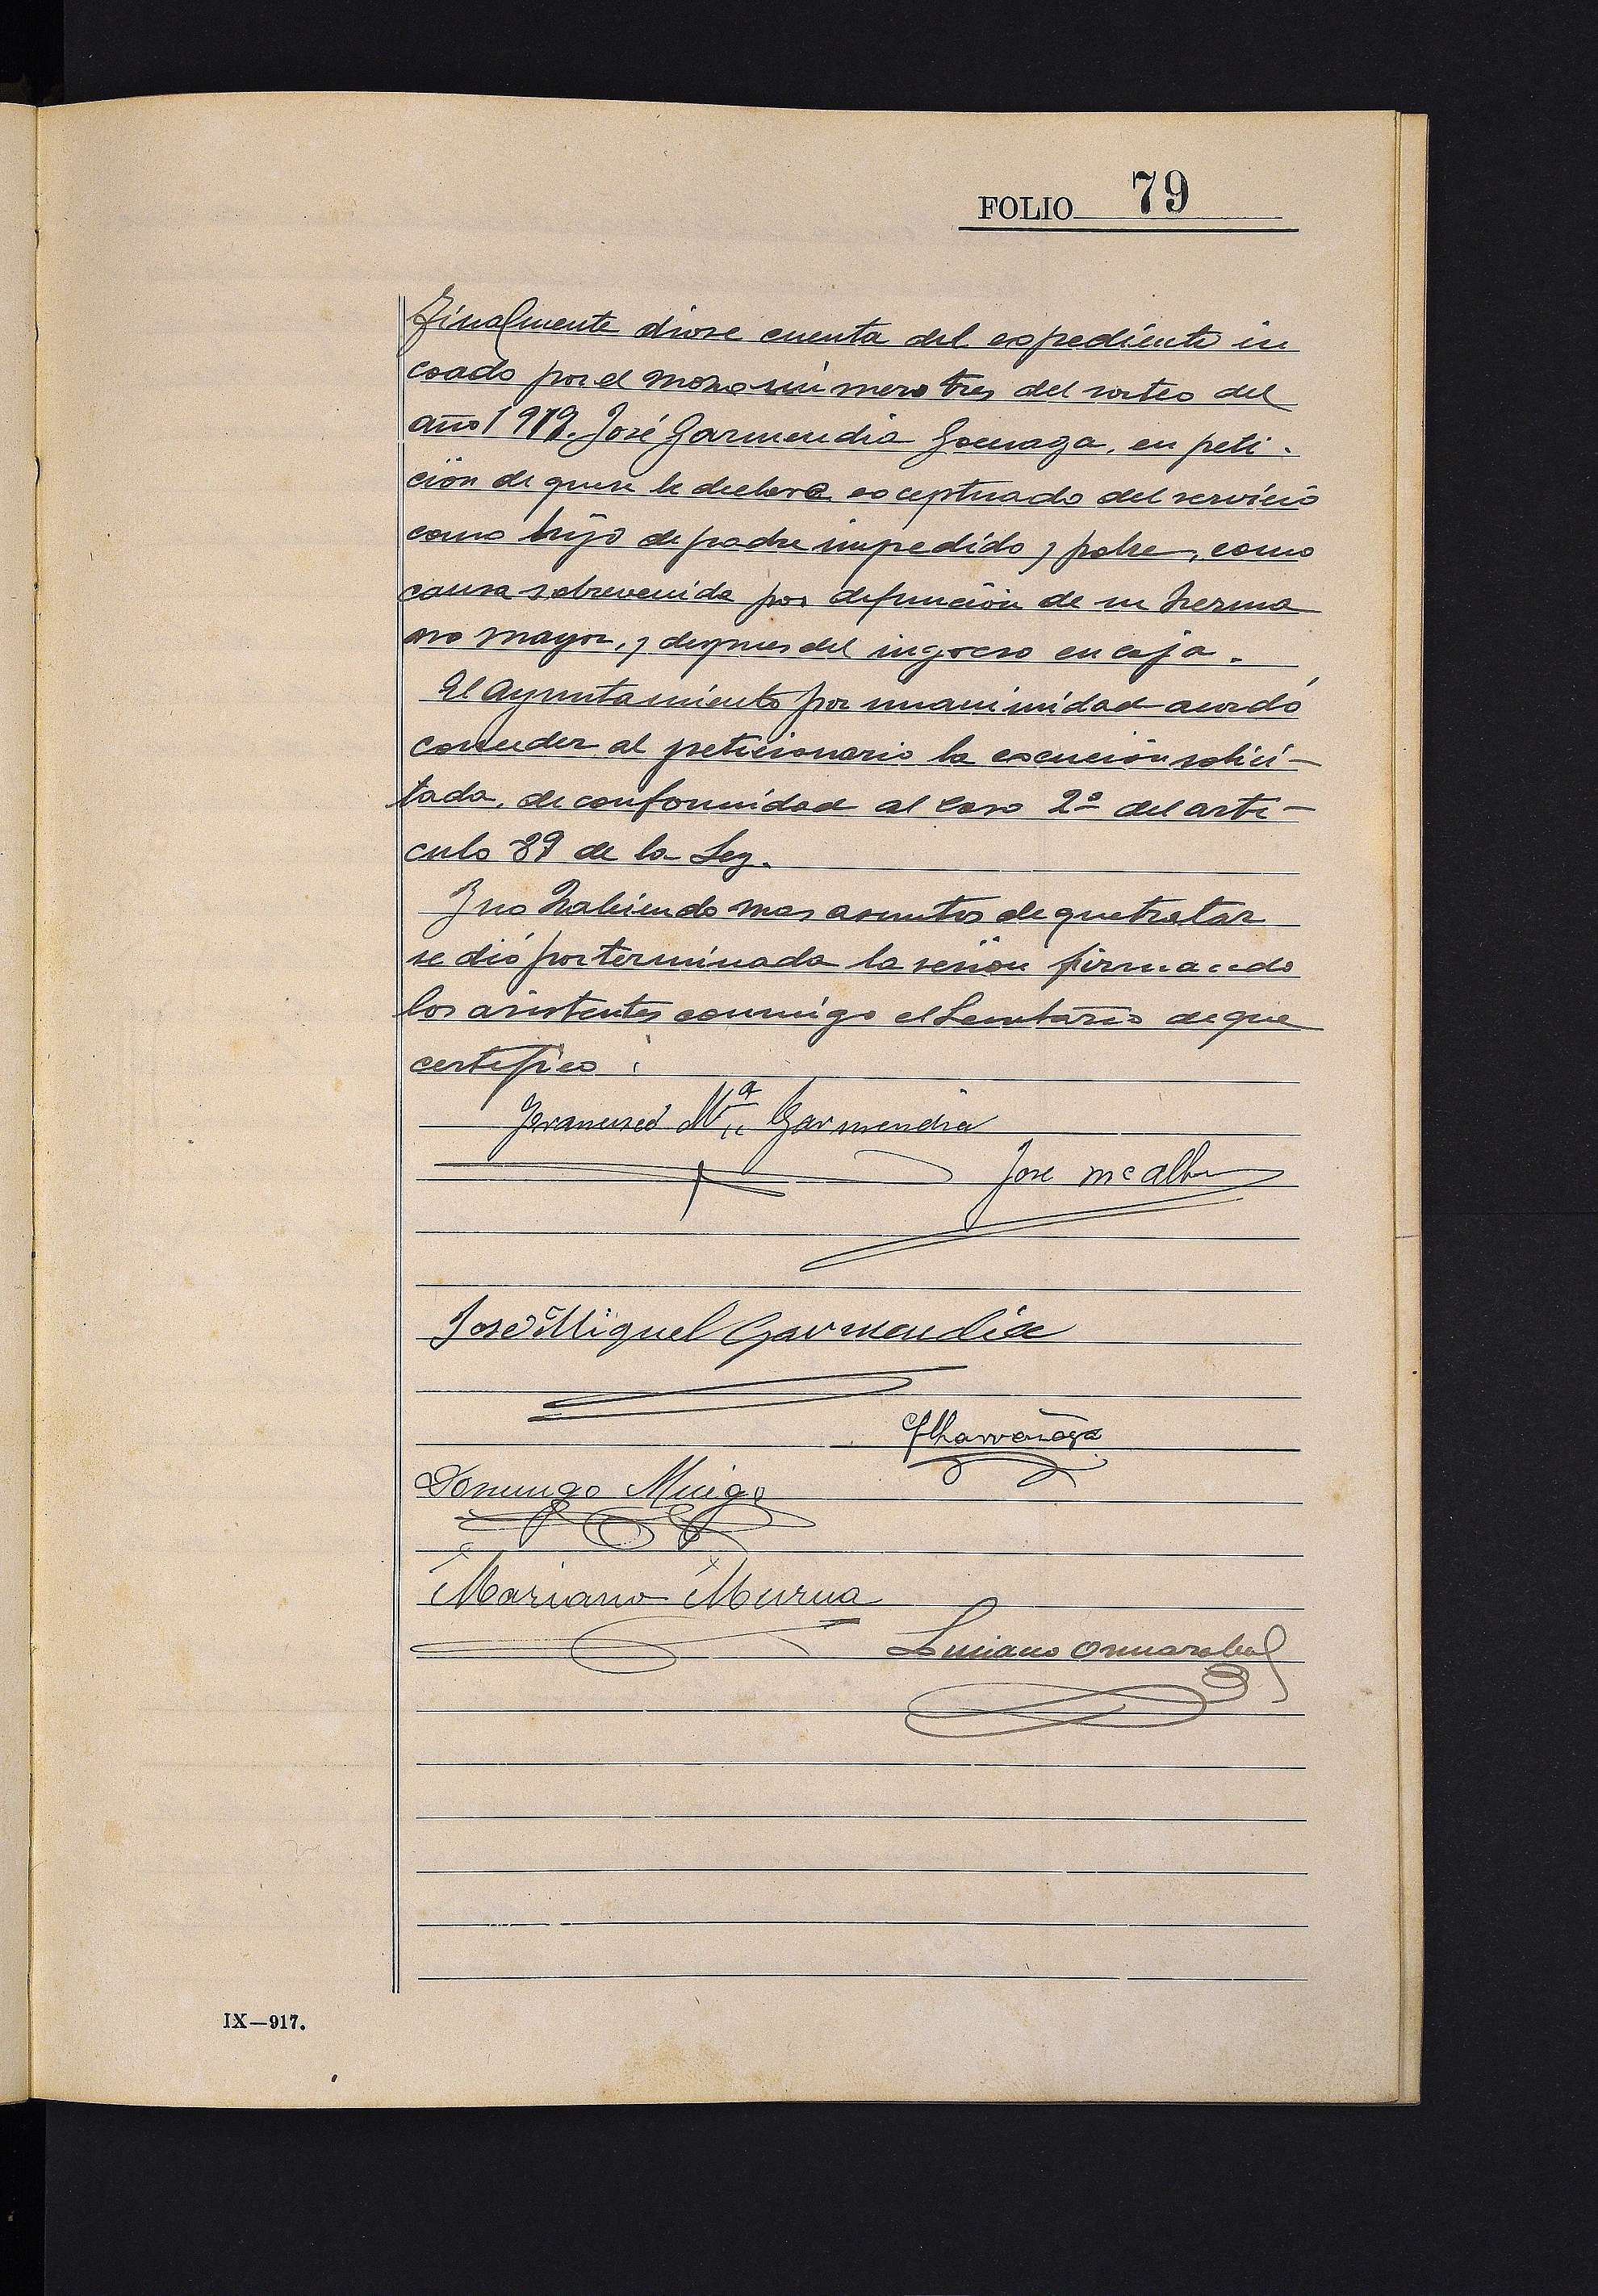 FOLIO 79
Finalmente diose cuenta del espediente in
coado por el mozo número tres del sorteo del
año 1919. José Garmendia Goenaga, en peti-
ción de que se le declare esceptuado del servicio
como hijo de padre impedido y pobre, como
causa sobrevenida por defunción de su herma
no mayor, y despues del ingreso en caja.
El Ayuntamiento por unanimidad acordó
conceder al peticionario la escención solici-
tada, de conformidad al caso 2º del arti-
culo 89 de la Ley.
Y no habiendo mas asuntos de que tratar
se dió por terminada la sesión firmando
los asistentes conmigo el Secretario de que
certifico.
Francisco Mª Garmendia
Jose Mª
José Miguel Garmendia
Domingo
Mariano Murua
Luciano
IX—917.